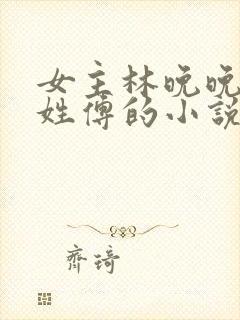 女主林晚晚
姓傅的小說
齊琦